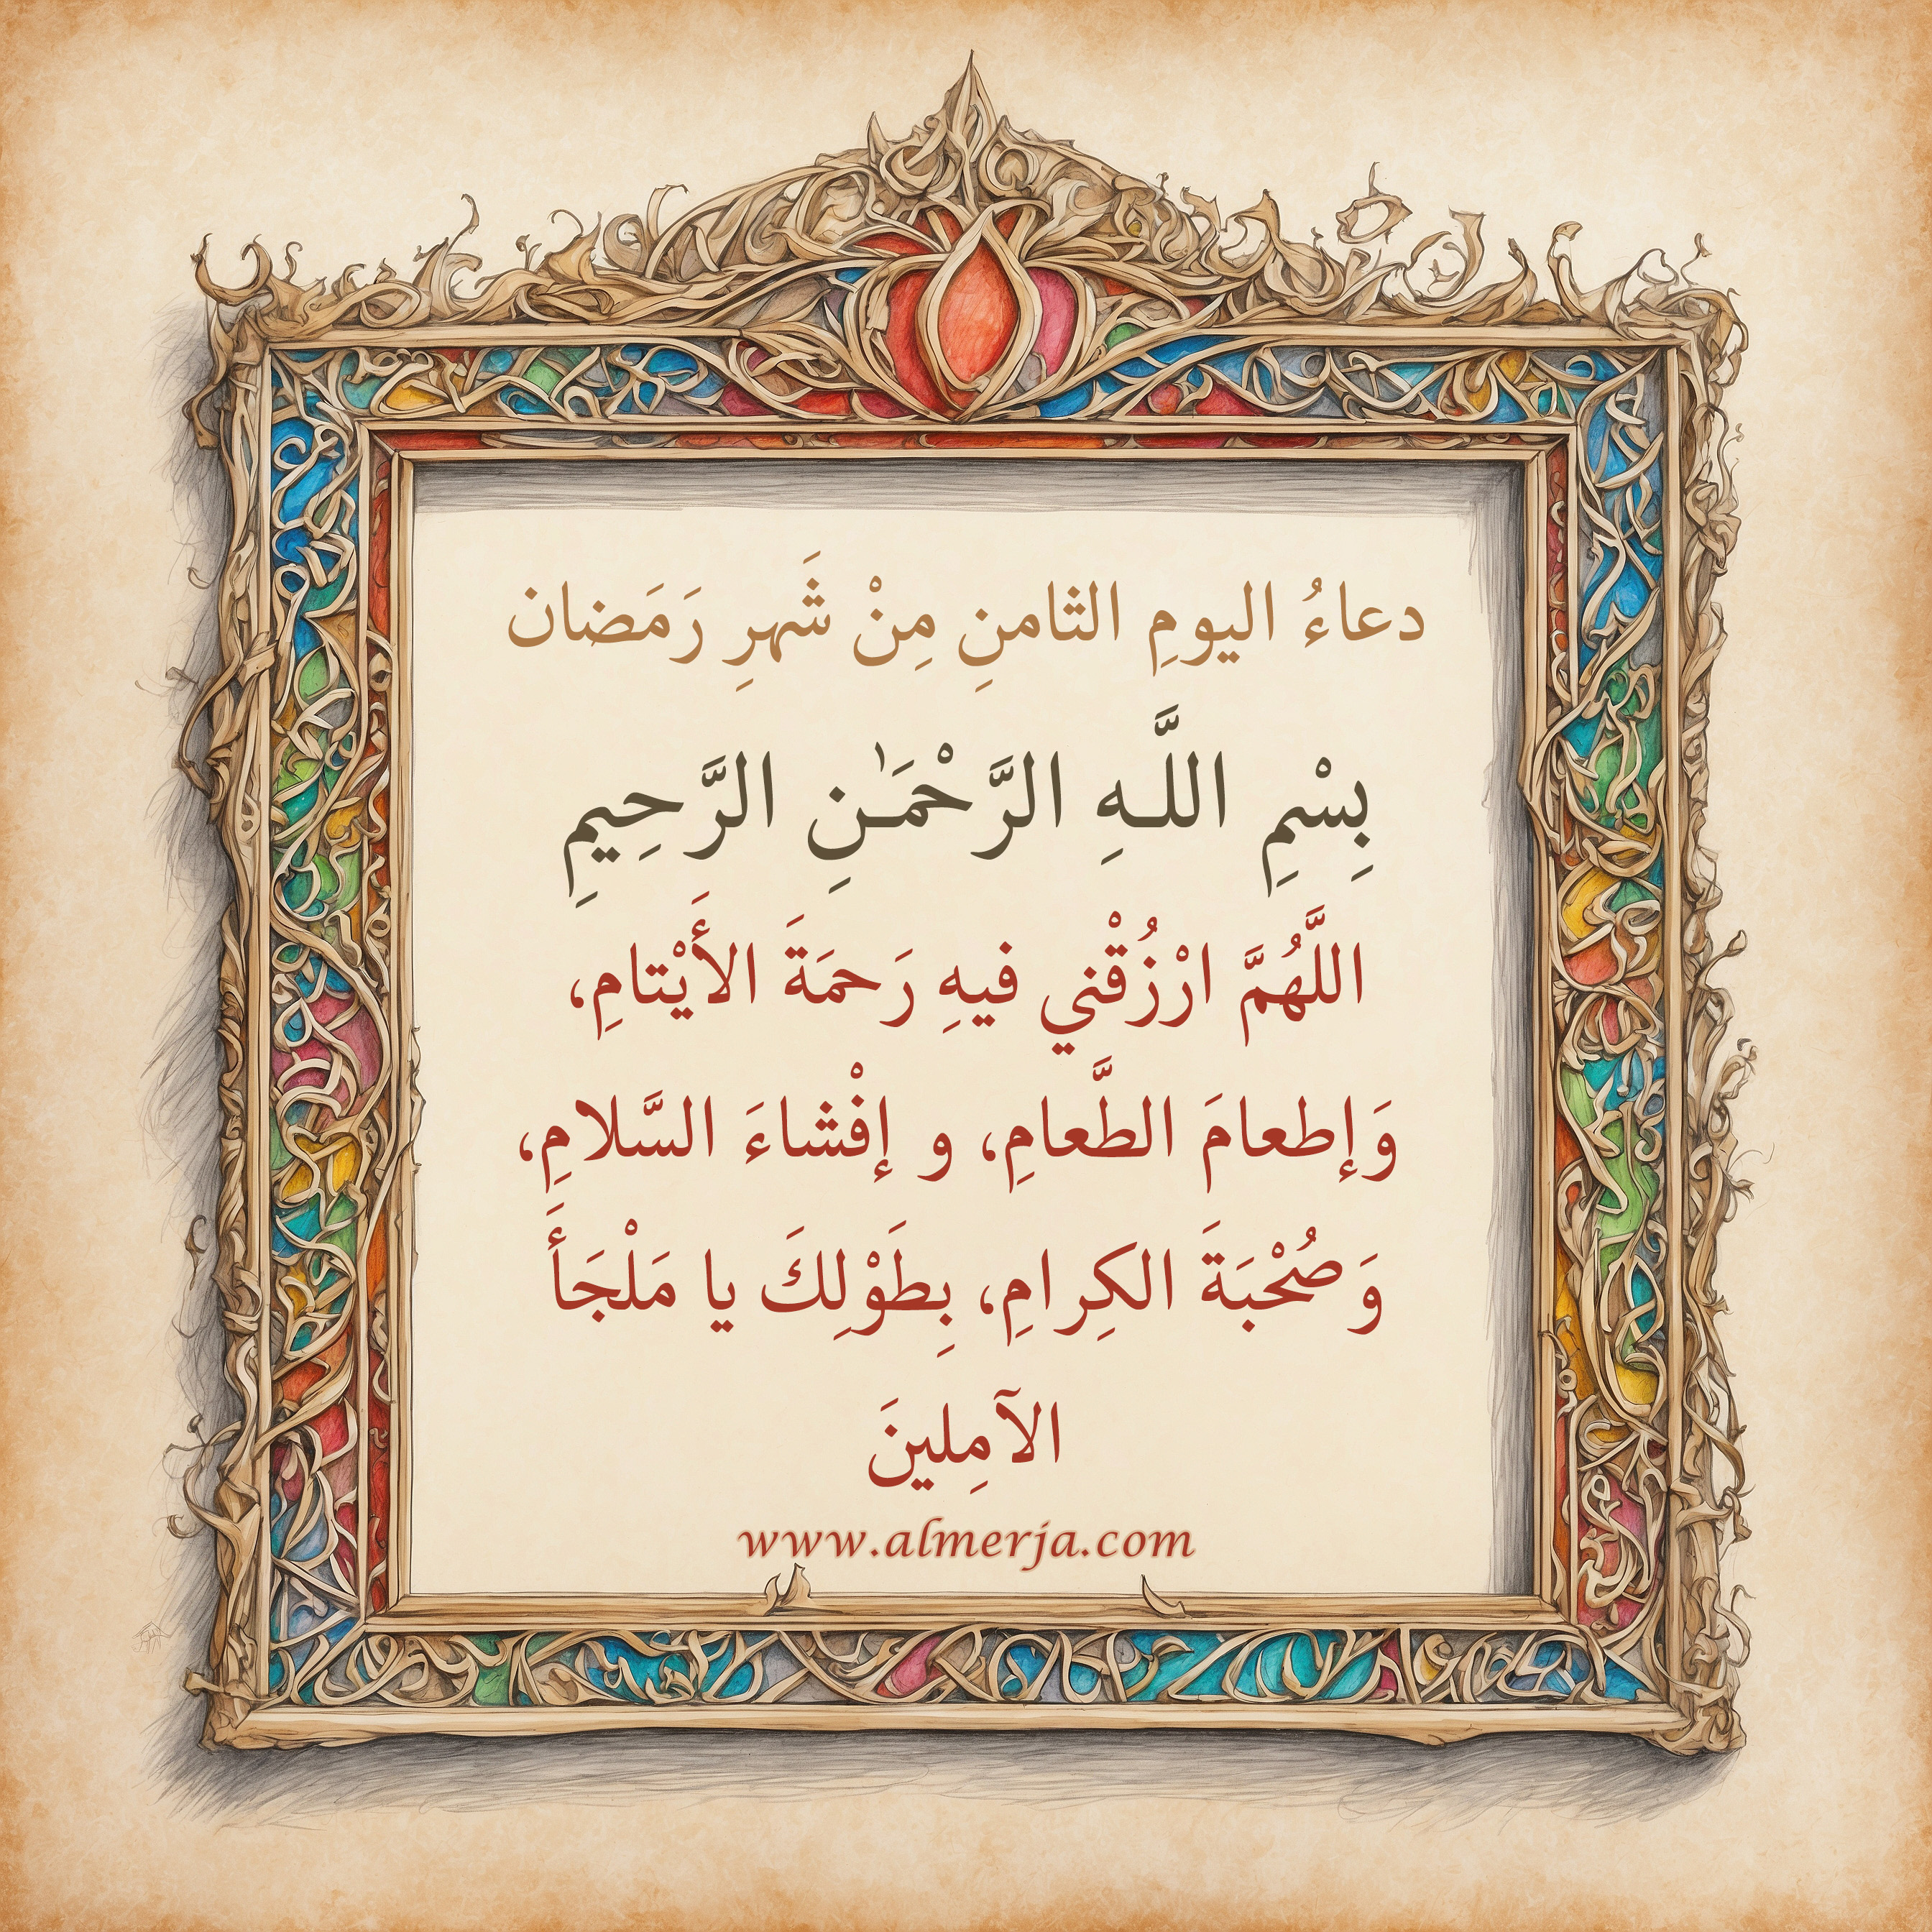 دعاءُ اليومِ الثامنِ مِنْ شَهرِ رَمَضان
بِسْمِ اللَّـهِ الرَّحْمَـٰنِ الرَّحِيمِ
اللَّهُمَّ ارْزُقْني فيهِ رَحمَةَ الأَيْتامِ،
وَإطعامَ الطَّعامِ، و إفْشاءَ السَّلامِ،
وَصُحْبَةَ الكِرامِ، بِطَوْلِكَ يا مَلْجَأَ
الآمِلينَ
www.almerja.com